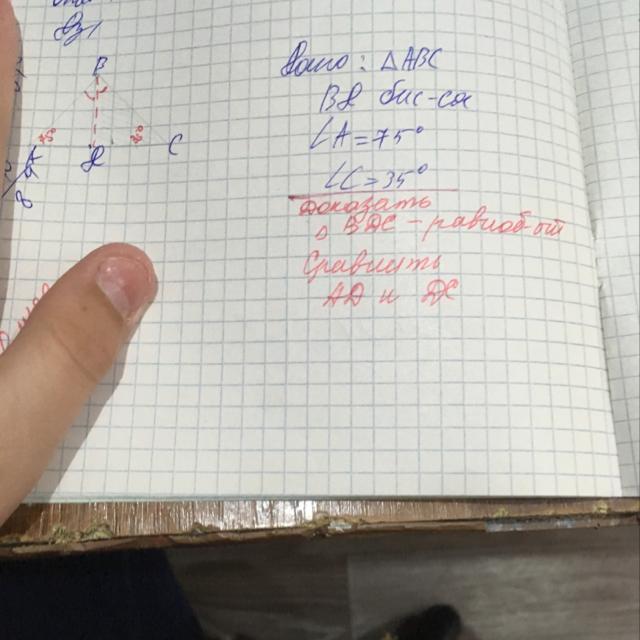 В
75°
35°
С
Дано: ΔABC
BD бис-са
∠A = 75°
∠C = 35°
Доказать
Δ BDC - равноб-ий
Сравнить
AD и DC